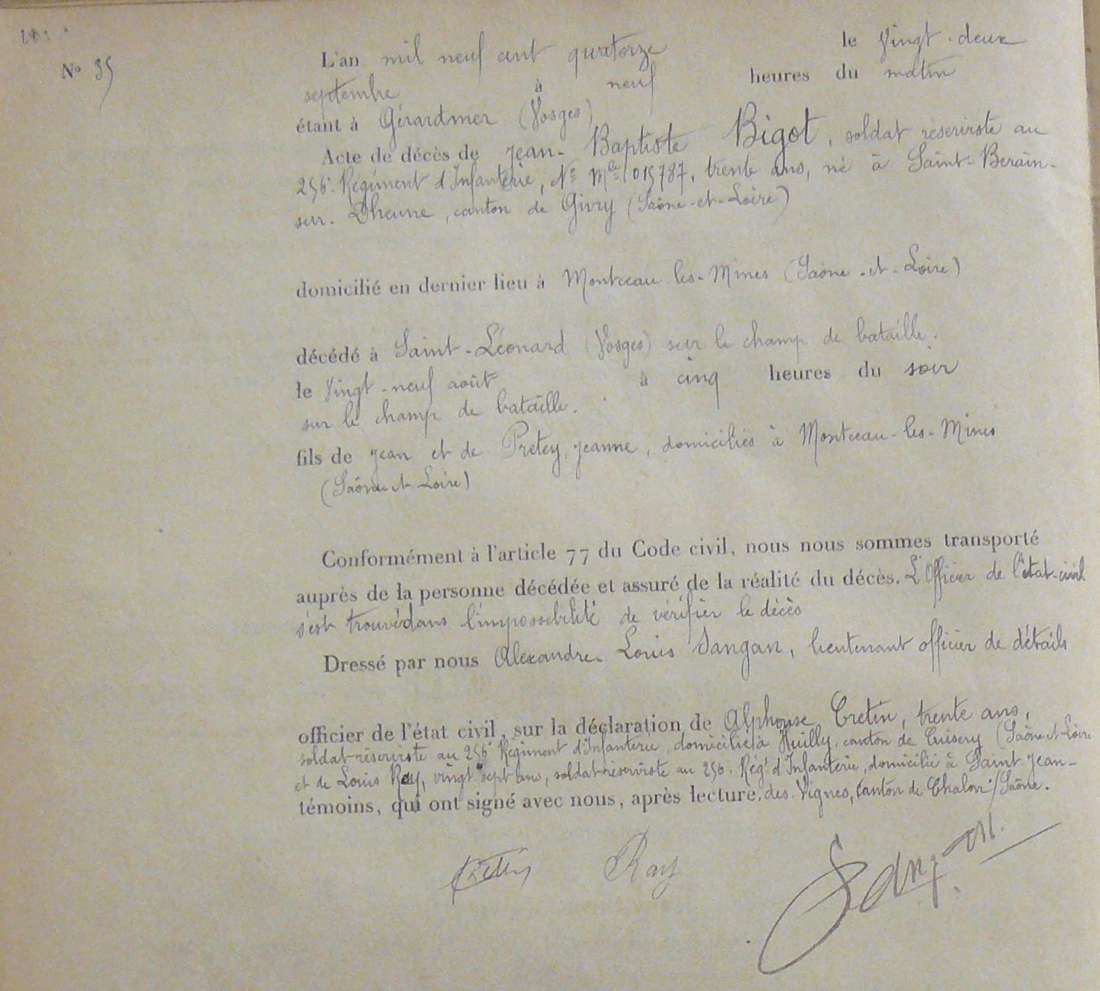 N° 35
L'an mil neuf cent quatorze le Vingt-deux
septembre à neuf heures du matin
étant à Gérardmer (Vosges)
Acte de décès de Jean-Baptiste Bigot, soldat réserviste au
256e Régiment d'Infanterie, N° Mle 015787, trente ans, né à Saint-Berain-
sur-Dheune, canton de Givry (Saône-et-Loire)
domicilié en dernier lieu à Montceau-les-Mines (Saône-et-Loire)
décédé à Saint-Léonard (Vosges) sur le champ de bataille.
le Vingt-neuf août à cinq heures du soir
sur le champ de bataille.
fils de Jean et de Pretey, Jeanne, domiciliés à Montceau-les-Mines
(Saône-et-Loire)
Conformément à l'article 77 du Code civil, nous nous sommes transporté
auprès de la personne décédée et assuré de la réalité du décès. L'Officier de l'état-civil
s'est trouvé dans l'impossibilité de vérifier le décès
Dressé par nous Alexandre-Louis Sangan, lieutenant officier de détails
officier de l'état civil, sur la déclaration de Alphonse Cretin, trente ans,
soldat-réserviste au 256e Régiment d'Infanterie, domicilié à Huilly, canton de Cuisery (Saône-et-Loire
et de Louis Ray, vingt sept ans, soldat-réserviste au 256e Régt d'Infanterie, domicilié à Saint-Jean-
témoins, qui ont signé avec nous, après lecture. des-Vignes, canton de Chalon s/Saône.
Cretin Ray Sangan